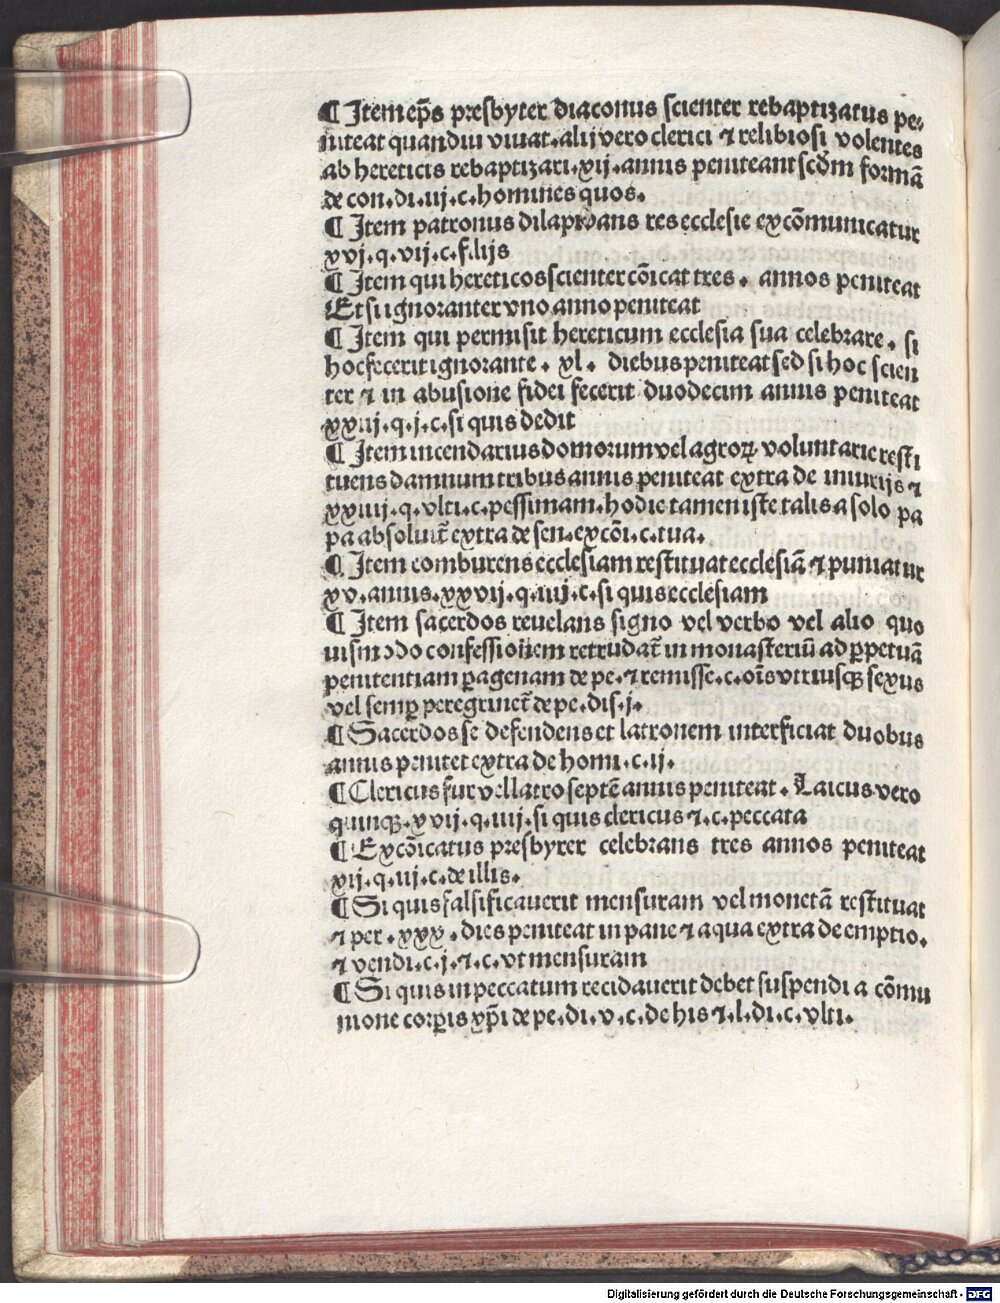 ¶ Item ep̄s presbyter diaconus scienter rebaptizatus pe⸗
niteat quandiu viuat.alij vero clerici ⁊ relibiosi volentes
ab hereticis rebaptizari.xij.annis peniteant scd̄m formā
de con.di.iij.c.homines quos.
¶ Item patronus dilapidans res ecclesie excōmunicatur
xvj.q.vij.c.filijs
¶ Item qui hereticos scienter cōicat tres. annos peniteat
Et si ignoranter vno anno peniteat
¶ Item qui permisit hereticum ecclesia sua celebrare. si
hoc fecerit ignorante. xl. diebus peniteat sed si hoc scien
ter ⁊ in abusione fidei fecerit duodecim annis peniteat
xxiiij.q.j.c.si quis dedit
¶ Item incendarius domorum vel agroꝝ voluntarie resti
tuens damnum tribus annis peniteat extra de iniurijs ⁊
xxiiij.q.vlti.c.pessimam.hodie tamen iste talis a solo pa
pa absoluit̄ extra de sen.excōi.c.tua.
¶ Item comburens ecclesiam restituat ecclesiā ⁊ puniatur
xv.annis.xxvij.q.iiij.c.si quis ecclesiam
¶ Item sacerdos reuelans signo vel verbo vel alio quo
uismodo confessionem retrudat̄ in monasteriū ad ꝑpetuā
penitentiam ꝑagenam de pe.⁊ remisse.c.oīs vtriusqꝫ sexus
vel semꝑ peregrinet̄ de pe.dis.j.
¶ Sacerdos se defendens et latronem interficiat duobus
annis penitet extra de homi.c.ij.
¶ Clericus fur vel latro septē annis peniteat. Laicus vero
quinqꝫ.xvij.q.iiij.si quis clericus ⁊.c.peccata
¶ Excōicatus presbyter celebrans tres annos peniteat
xij.q.iij.c.de illis.
¶ Si quis falsificauerit mensuram vel monetā restituat
⁊ per.xxx.dies peniteat in pane ⁊ aqua extra de emptio.
⁊ vendi.c.j.⁊.c.vt mensuram
¶ Si quis in peccatum recidauerit debet suspendi a cōmu
nione corꝑis xp̄i de pe.di.v.c.de his ⁊.l.di.c.vlti.
Digitalisierung gefördert durch die Deutsche Forschungsgemeinschaft - DFG